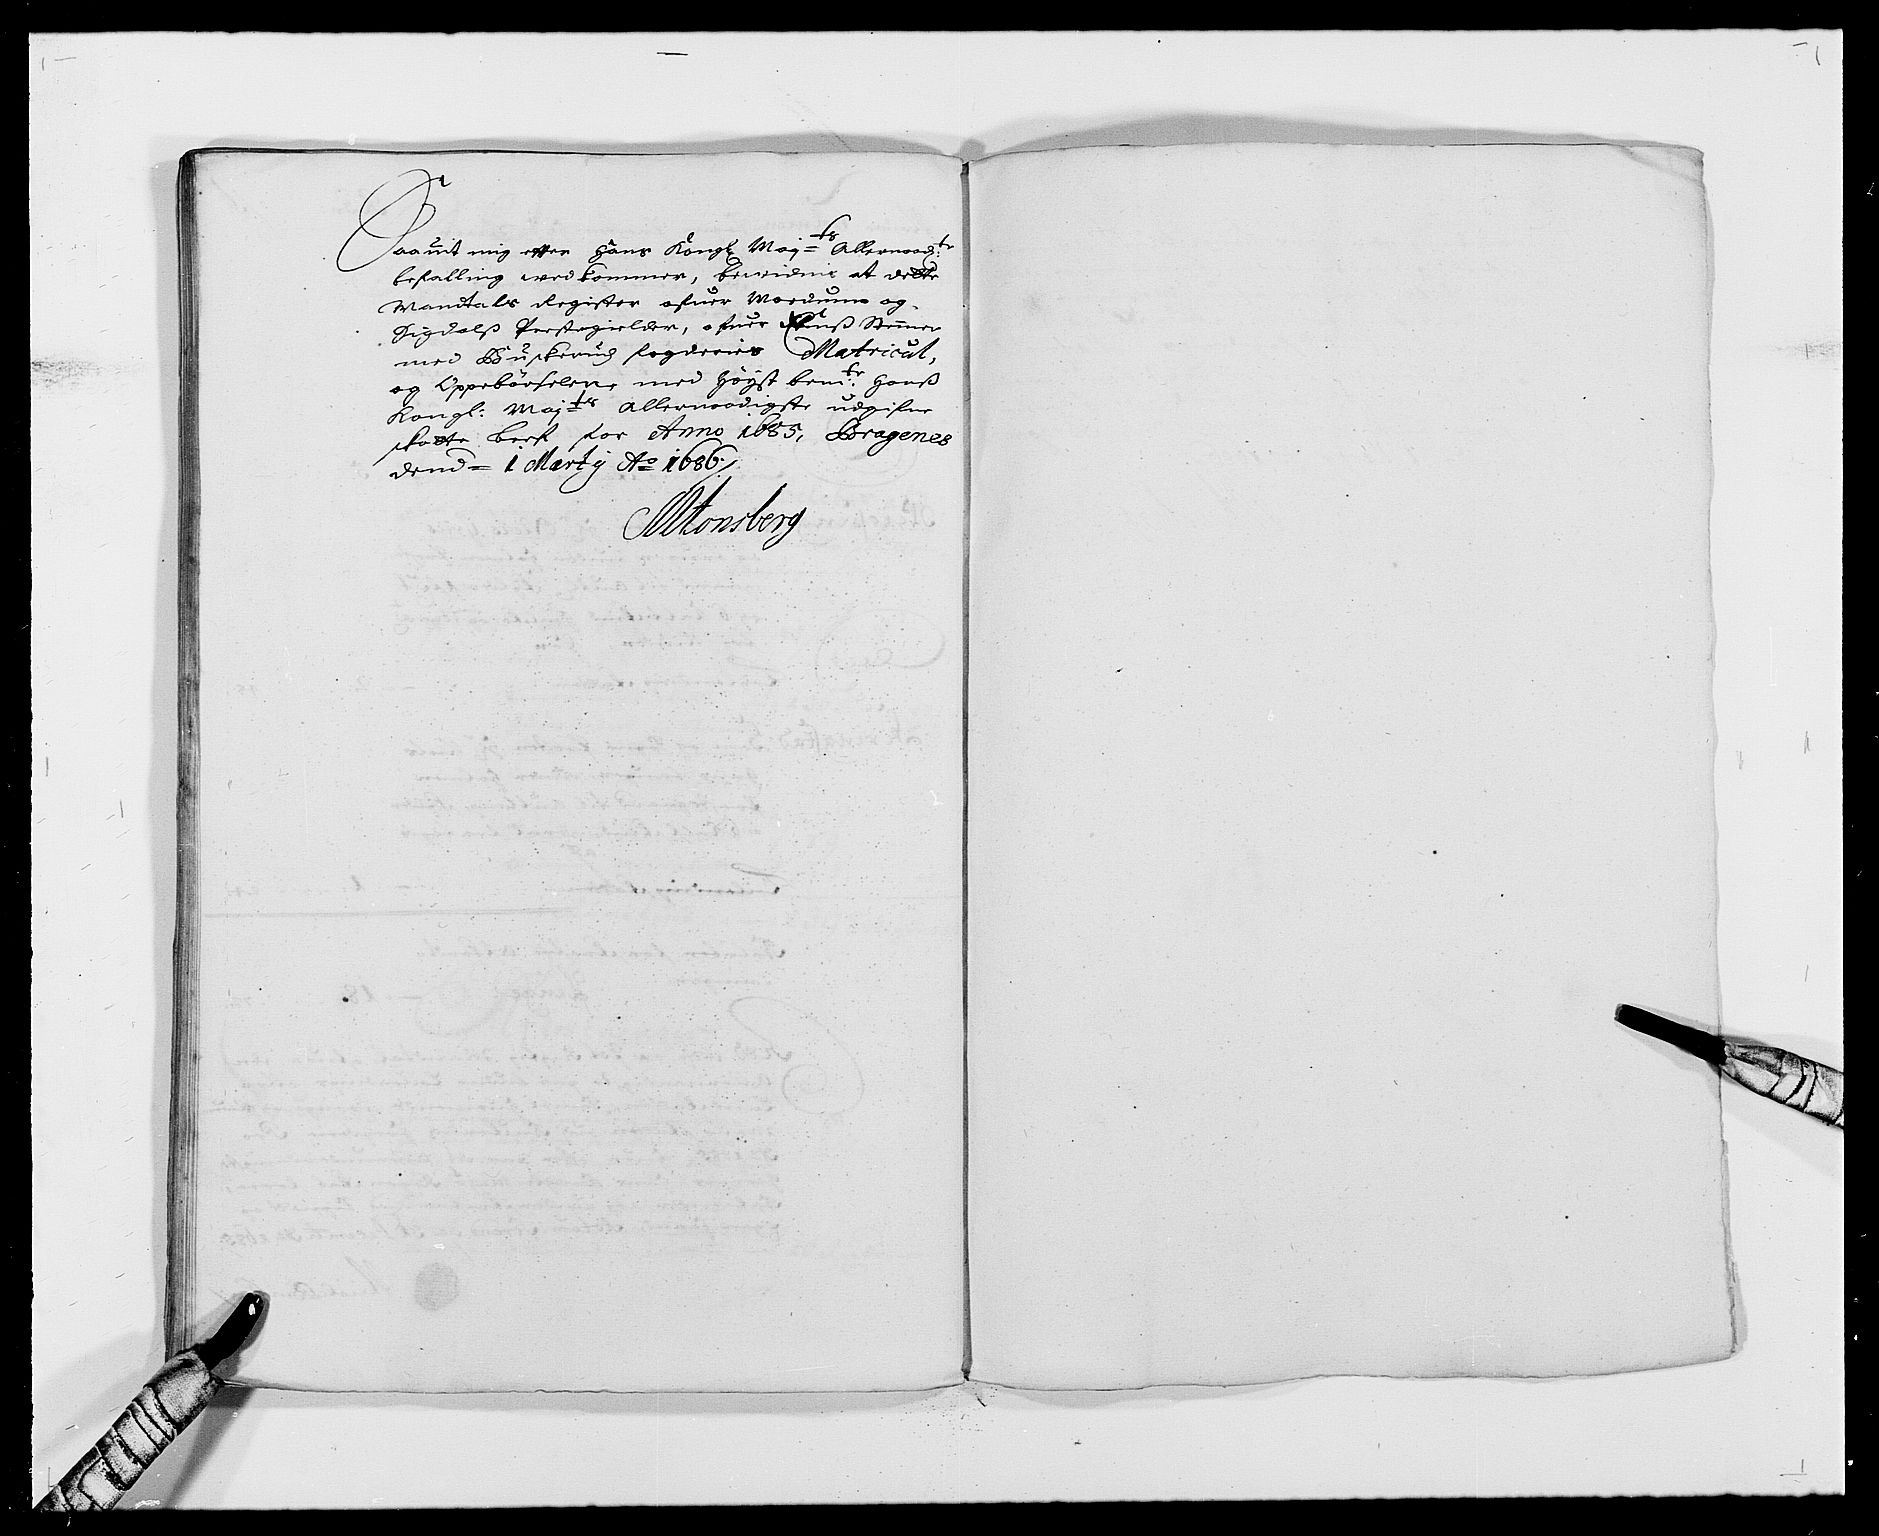 Saauit mig effter Hans Kongl: Maj:ts Allernaad:te
befalling wedkommer, beuidnis at dette
Mandtals Register ofuer Modumb og
Sigdalß Prestegielder, ofuer Enß Stemmer
med Buskerud fogderies Matricul,
og Oppebörselen, med Höyst bem:te Hanß
Kongl: Maj:ts Allernaadigste udgifne
skatte breff for Anno 1685, Bragenes
dend 1 Marty Ao 1686
Mtonsberg